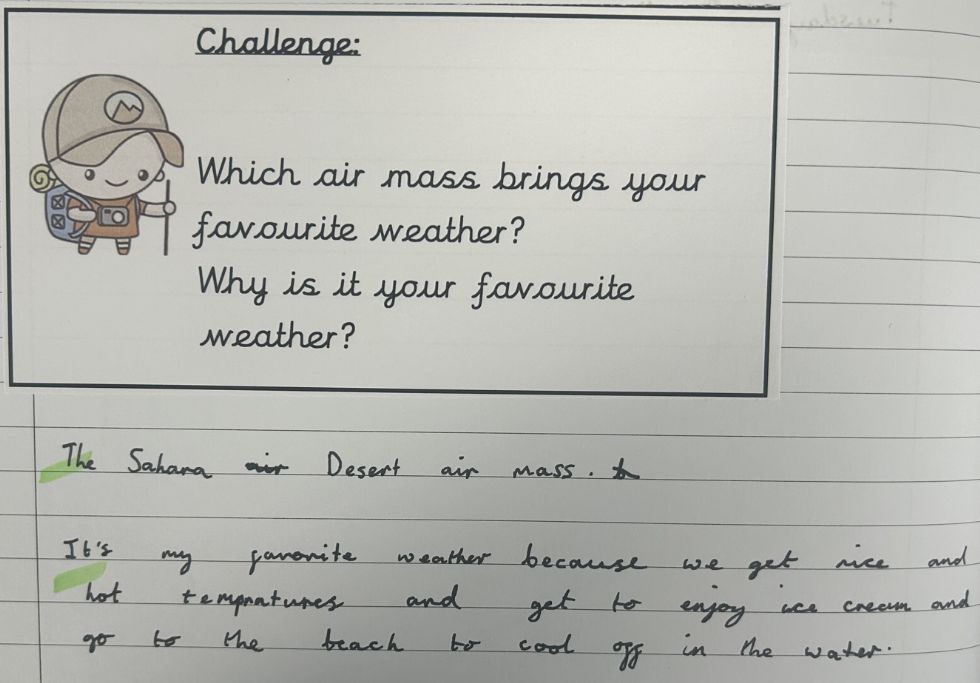 Challenge:
Which air mass brings your
favourite weather?
Why is it your favourite
weather?
The Sahara air Desert air mass.
It's my favorite weather because we get nice and
hot tempratures and get to enjoy ice cream and
go to the beach to cool off in the water.